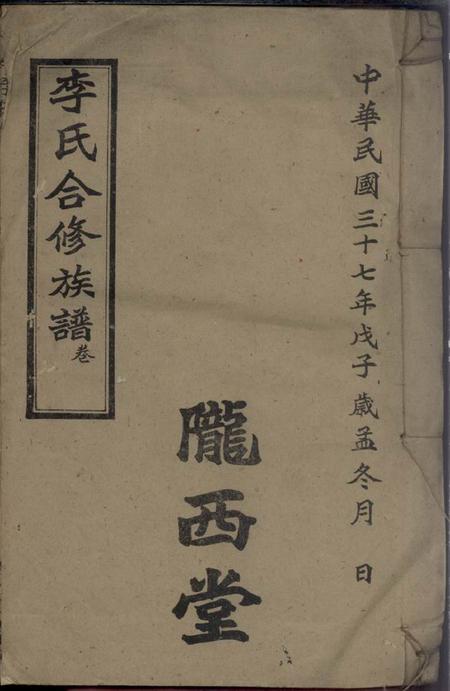 中華民國三十七年戊子歲孟冬月 日
隴西堂
李氏合修族譜卷